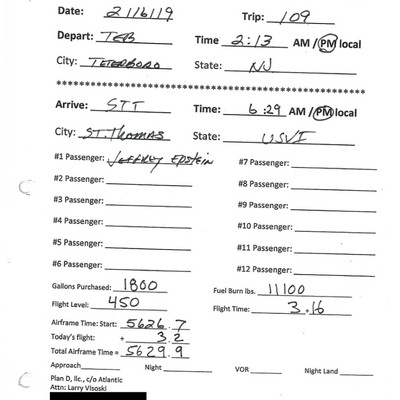 Date: 2/16/19 Trip: 109
Depart: TEB Time 2:13 AM / PM local
City: TETERBORO State: NJ
************************************************************
Arrive: STT Time: 6:29 AM / PM local
City: ST. THOMAS State: USVI
#1 Passenger: JEFFREY EPSTEIN #7 Passenger:
#2 Passenger: #8 Passenger:
#3 Passenger: #9 Passenger:
#4 Passenger: #10 Passenger:
#5 Passenger: #11 Passenger:
#6 Passenger: #12 Passenger:
Gallons Purchased: 1800 Fuel Burn lbs. 11100
Flight Level: 450 Flight Time: 3.16
Airframe Time: Start: 5626.7
Today's flight: + 3.2
Total Airframe Time = 5629.9
Approach Night VOR Night Land
Plan D, llc., c/o Atlantic
Attn: Larry Visoski